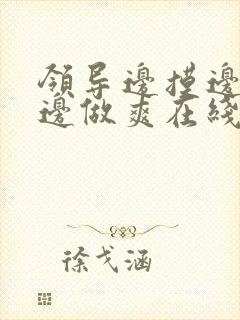 領导邊摸邊
邊做爽在綫
徐戈涵